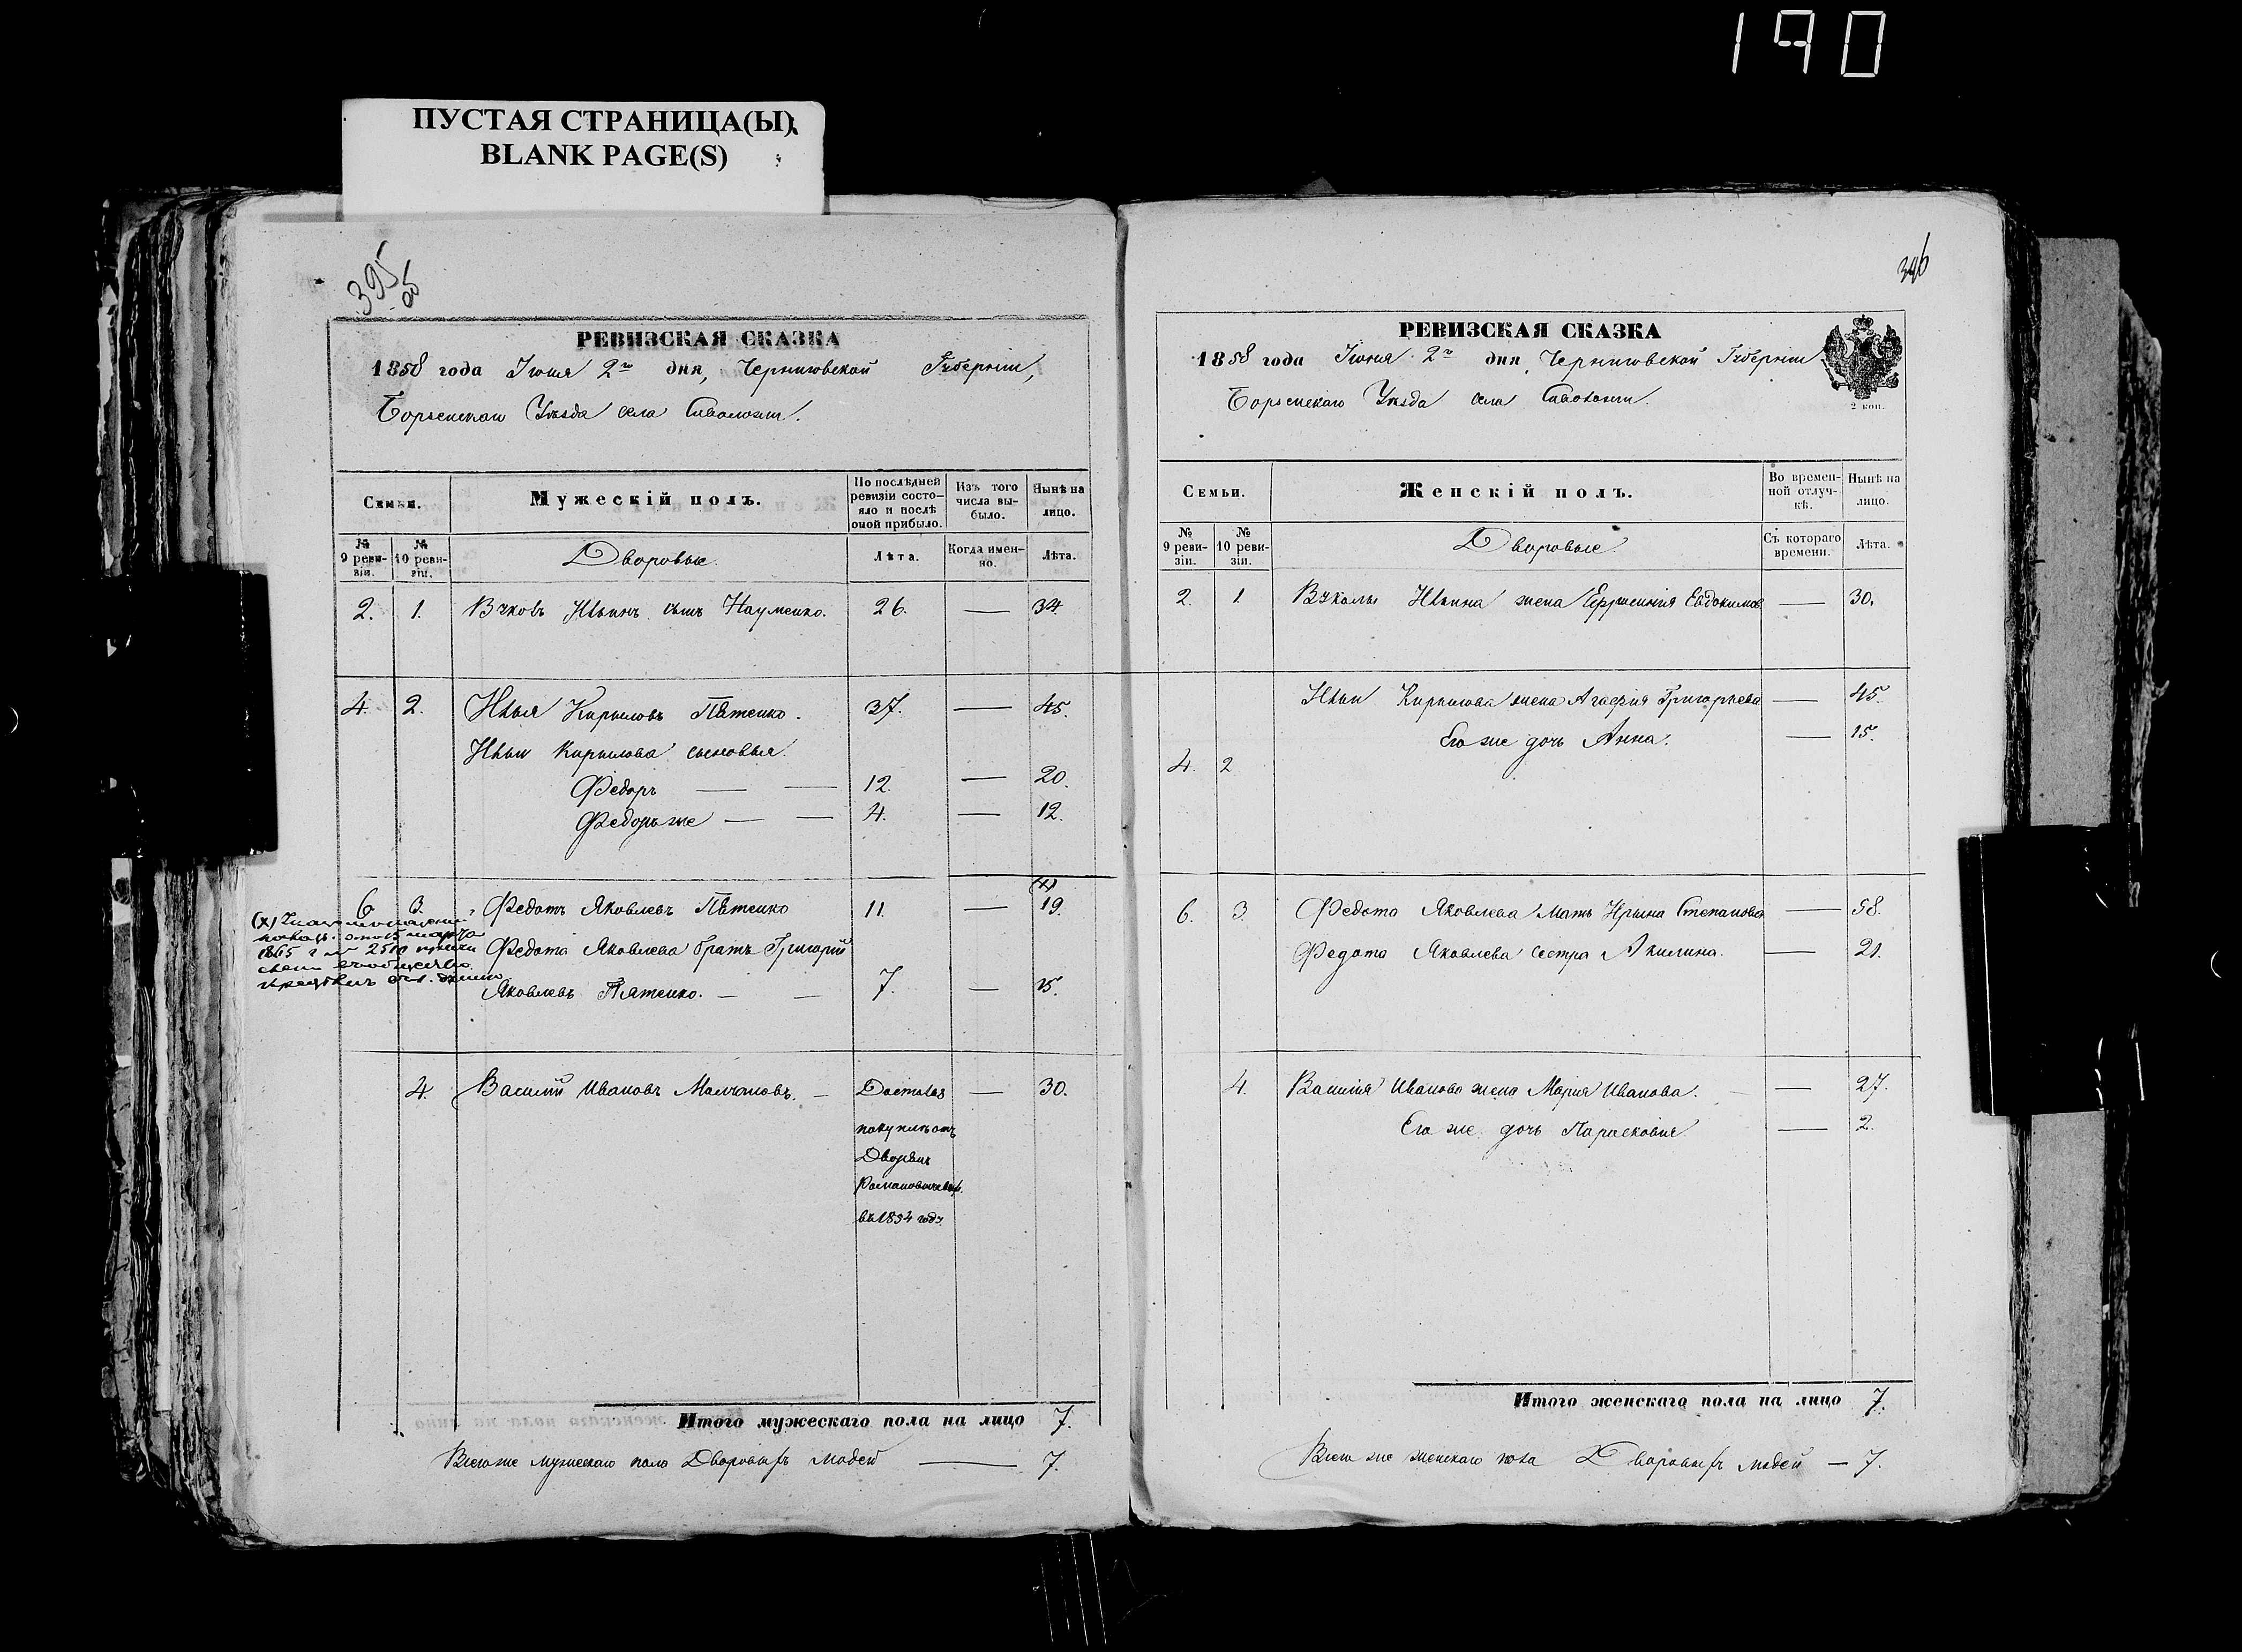 190
ПУСТАЯ СТРАНИЦА(Ы)
BLANK PAGE(S)
395
об
РЕВИЗСКАЯ СКАЗКА
1858 года Іюня 2го дня, Черниговской Губерніи,
Борзенскаго Уѣзда села
Семьи.
Мужескій полъ.
По послѣдней ревизіи состояло и послѣ оной прибыло.
Изъ того числа выбыло.
Нынѣ на лицо.
№ 9 ревизіи.
№ 10 ревизіи.
Дворовые.
Лѣта.
Когда именно.
Лѣта.
2. 1. Ильинъ сынъ Науменко. 26. — 34.
4. 2. Илья Кириловъ Пѣтенко. 37. — 45.
Ильи Кирилова сыновья
Федоръ — — 12. — 20.
Федоръ же — — 4. — 12.
(x)
6 3. Федотъ Яковлевъ Пѣтенко 11. — 19.
Федота Яковлева братъ Григорій
Яковлевъ Пятенко. — — 7. — 15.
(x)
1865 г
4. Василій Ивановъ Молчановъ. — — 30.
покупкѣ отъ
въ 1854 году.
Итого мужескаго пола на лицо 7.
Всего же мужескаго пола Дворовыхъ людей — 7.
396
РЕВИЗСКАЯ СКАЗКА
1858 года Іюня 2го дня, Черниговской Губерніи
Борзенскаго Уѣзда села
2 коп.
Семьи.
Женскій полъ.
Во временной отлучкѣ.
Нынѣ на лицо.
№ 9 ревизіи.
№ 10 ревизіи.
Дворовые.
Съ котораго времени.
Лѣта.
2. 1. Ильина жена Евдокимов — 30.
Ильи Кирилова жена Агафія Григорьева — 45.
Его же дочь Анна. — 15.
4. 2
6. 3. Федота Яковлева Мать Ирина Степанова — 58.
Федота Яковлева сестра Акилина. — 21.
4. Василія Иванова жена Марія Иванова. — 27.
Его же дочь Парасковія — 2.
Итого женскаго пола на лицо 7.
Всего же женскаго пола Дворовыхъ людей — 7.